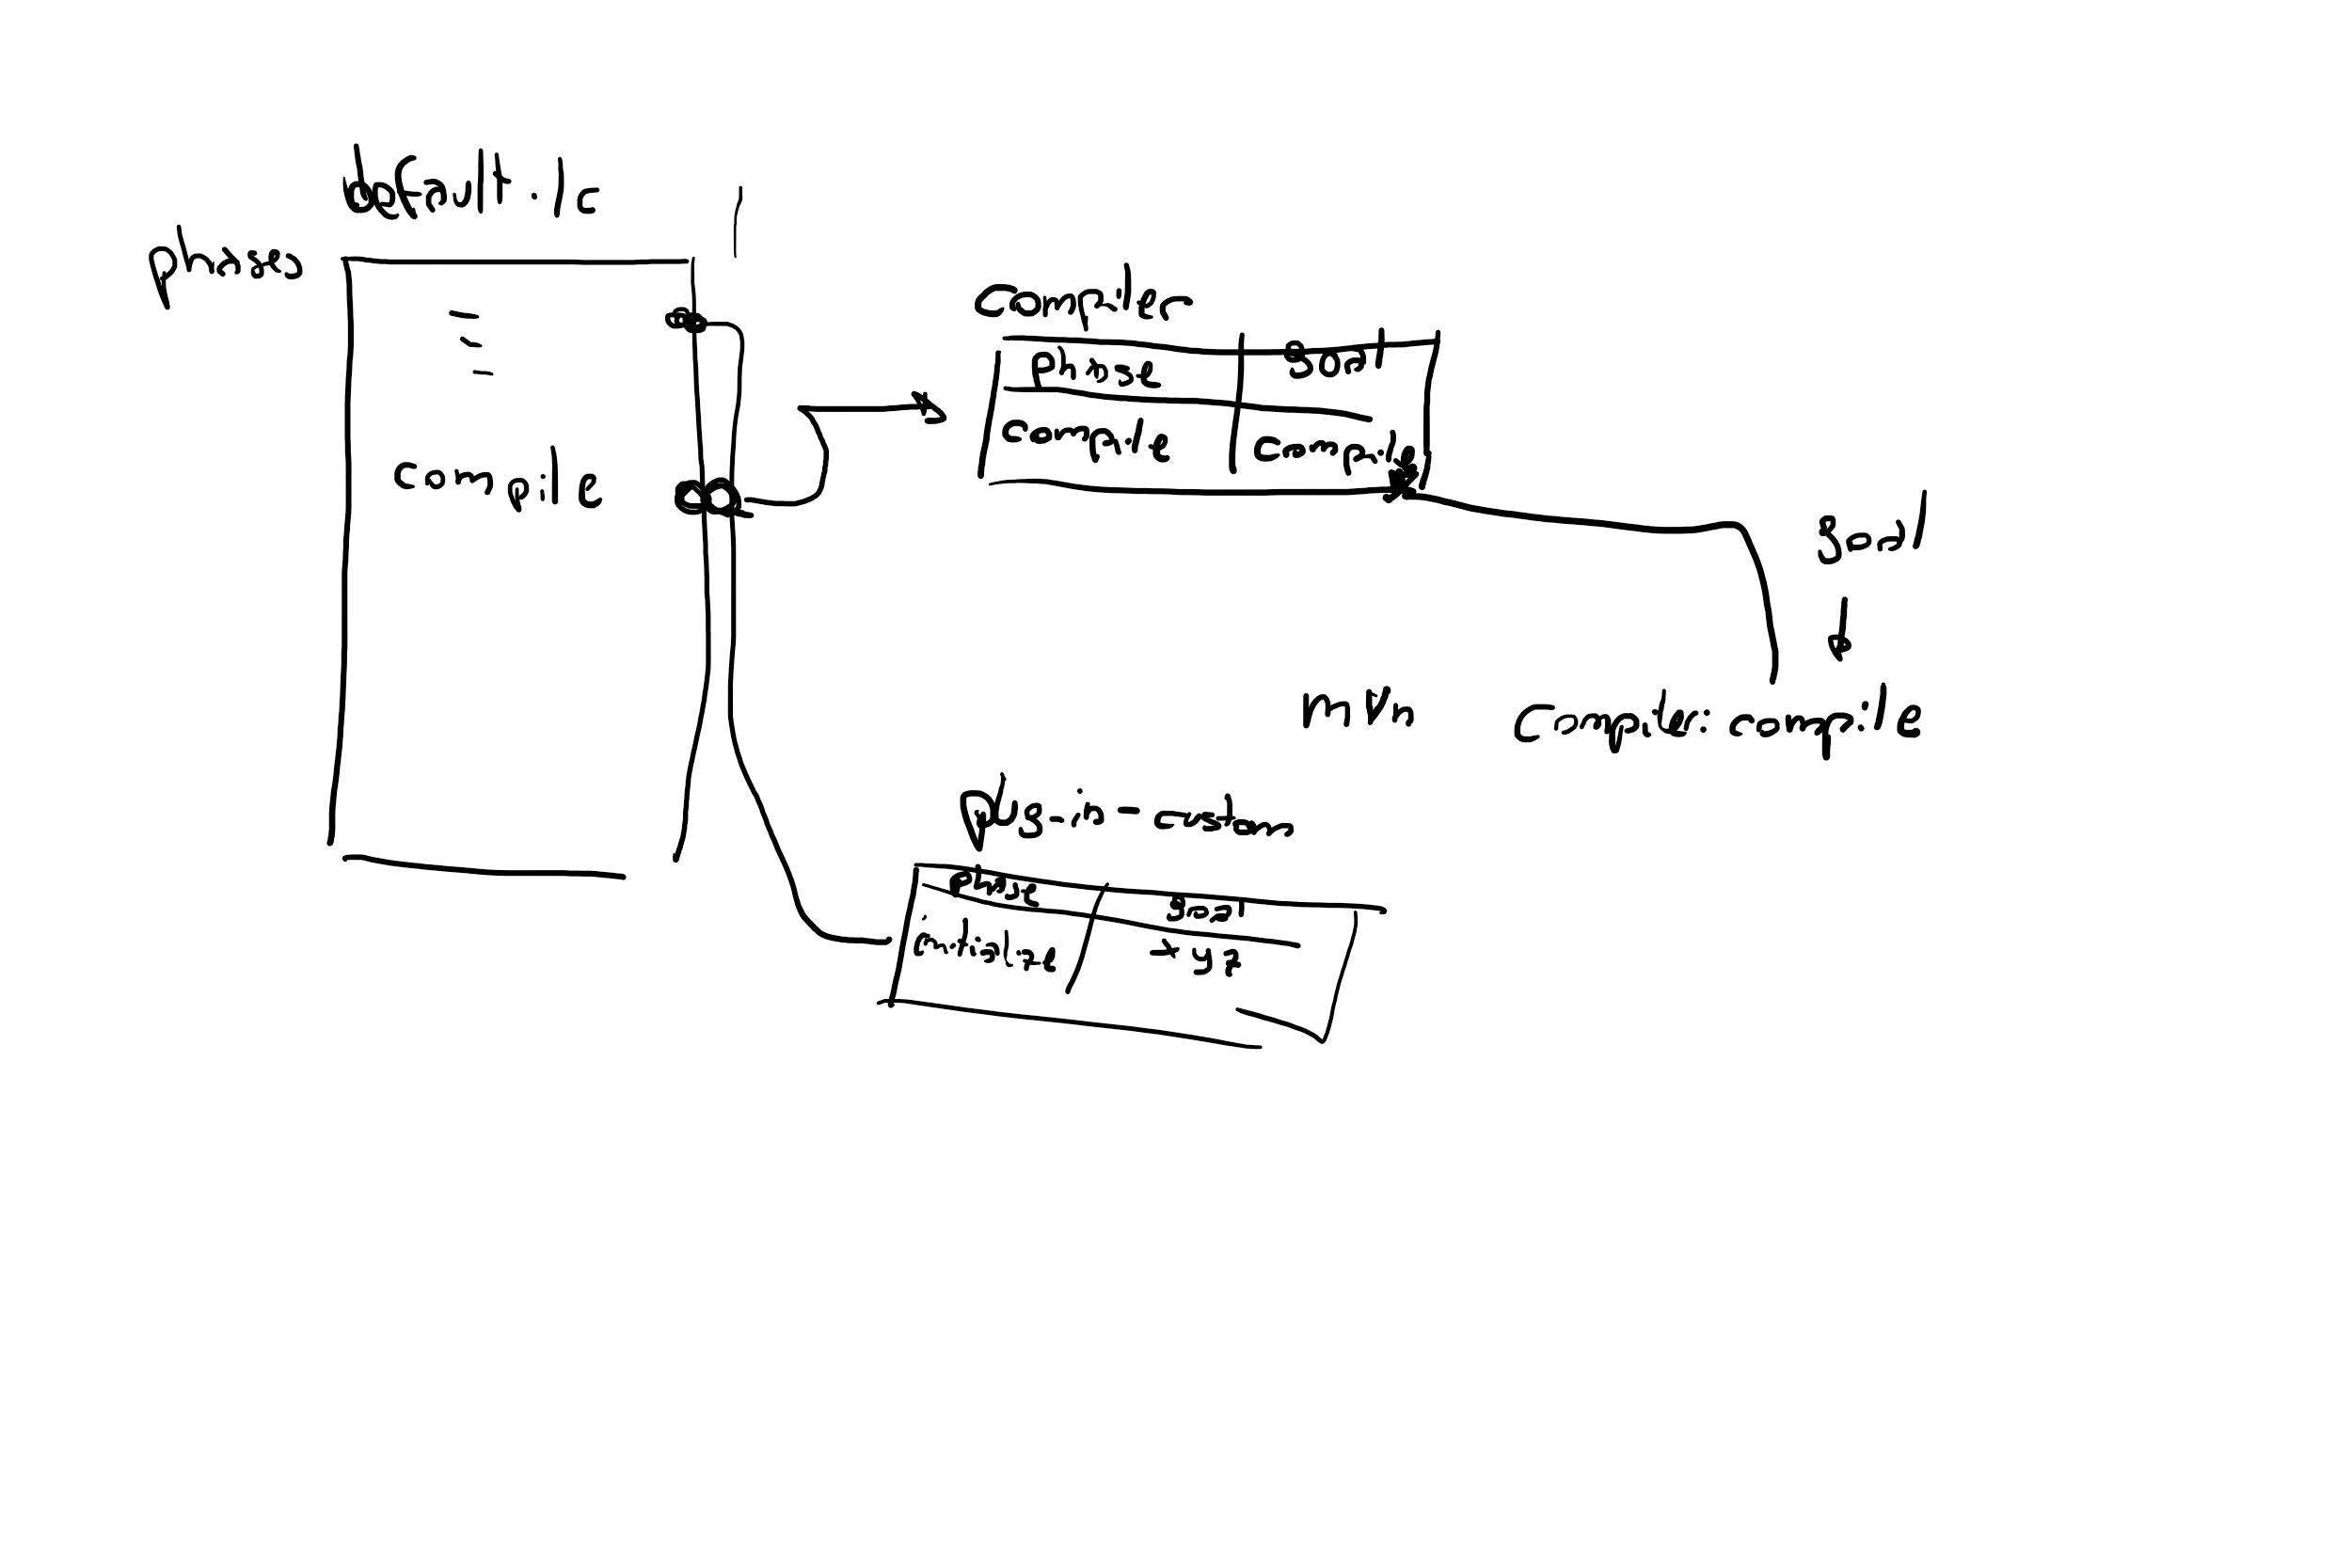 default.lc
phases
compiler
Phase goal
compile compile
compile
goal
mvn compiler:compile
plug-in-custom
Phase goal
initialize xyz